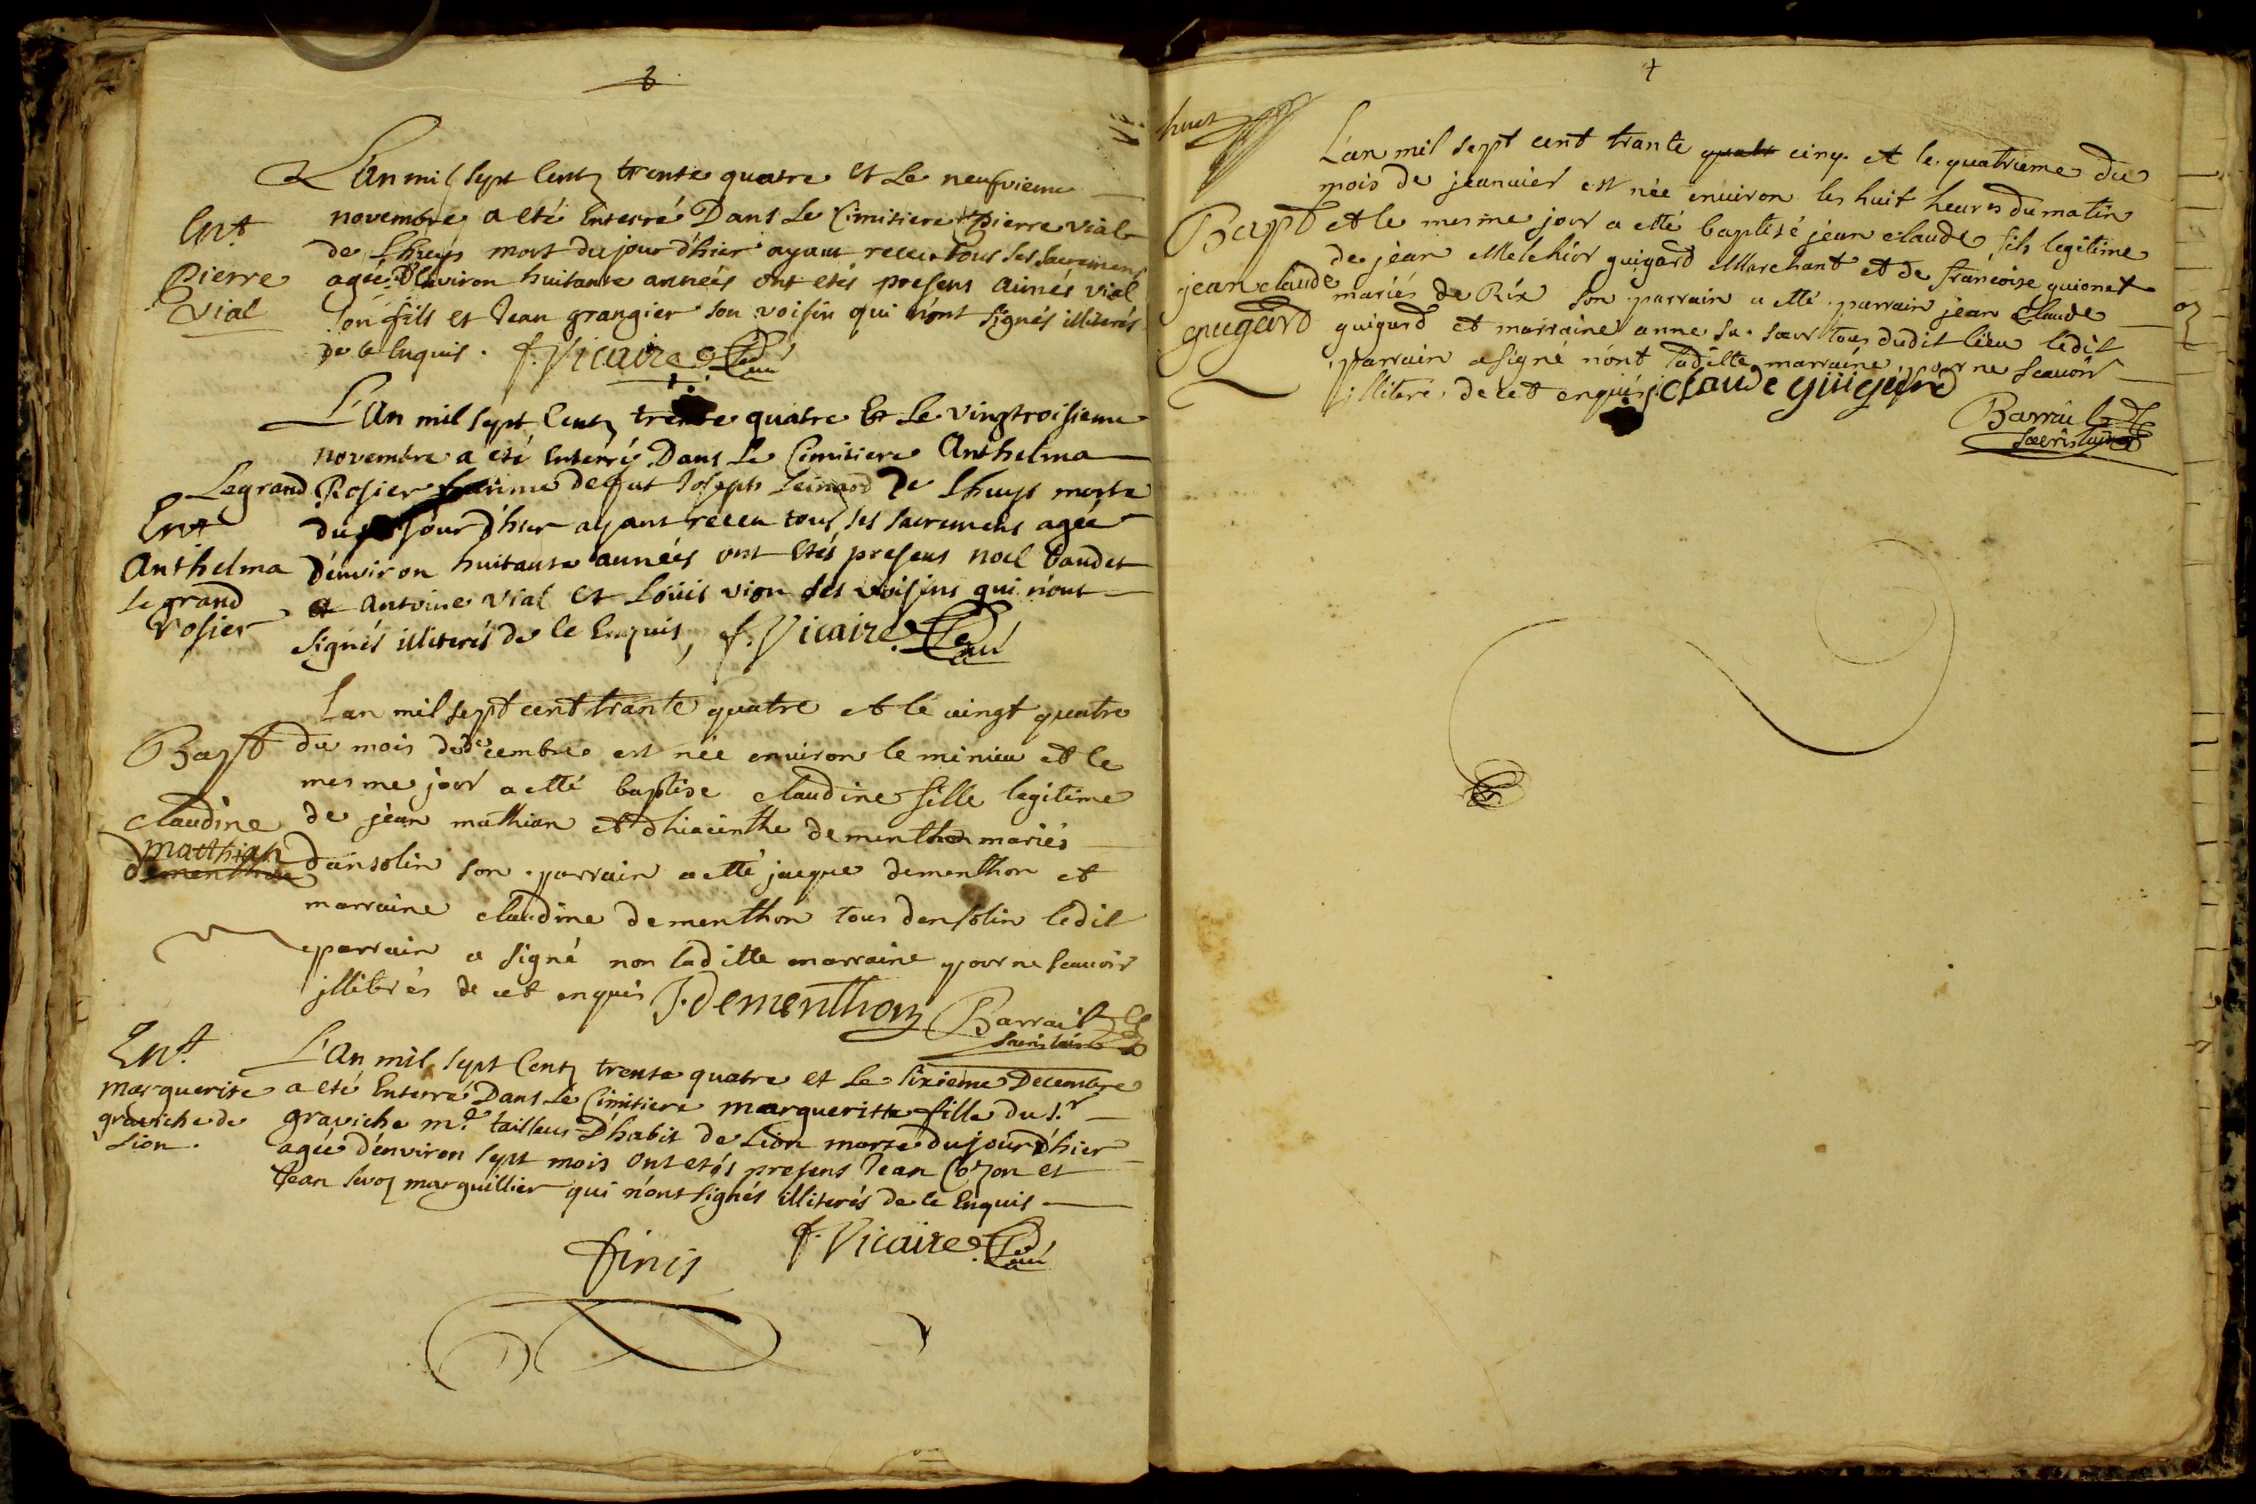 L'An mil sept Centz trente quatre et Le neufvieme
novembre a eté Enterré Dans Le Cimitiere Pierre vial
de Lhuys mort du jour d'hier ayant receu tous ses sacremens
agée D'Environ huitante années ont etés presens aimés vial
son fils et Jean grangier son voisin qui n'ont signés illiterés
de ce Enquis. f. Vicaire
Ent
Pierre
vial
L'An mil sept Centz trente quatre Et Le vingtroisieme
novembre a eté Enterré Dans Le Cimitiere Anthelma
Legrand Rosier femme defut Joseph Leinard De Lhuys morte
du jour d'hier ayant receu tous ses sacremens agée
d'environ huitante années ont etés presens noel baudet
et Antoine vial et Loüis vion ses voisins qui n'ont
signés illiterés de ce Enquis, f. Vicaire
Ent
Anthelma
Legrand
rosier
Lan mil sept cent trante quatre et le vingt quatre
du mois dedecembre est née environ le minieu et le
mesme jour a etté baptise claudine fille legitime
de jean mathian et dhiacinthe dementhon mariés
dansolin son parrain a etté jaque dementhon et
marraine claudine dementhon tous densolin ledit
parrain a signé non laditte marraine pour ne scauoir
illiterés de cet enquis J. dementhon Barrait
sacristain
Bapt
claudine
matthian
dementhon
L'An mil sept Centz trente quatre et Le sixieme Decembre
a eté Enterré Dans Le Cimitiere margueritte fille du s.r
graviche m.e tailleur D'habit de Lion morte du jour d'hier
agée d'environ sept mois ont etés presens Jean Cozon et
Jean sevoz marguillier qui n'ont signés illiterés de ce Enquis
f. Vicaire
finis
Ent
marguerite
graviche de
Lion.
4
huet
Lan mil sept cent trante quatr cinq et le quatrieme du
mois de jeanuier est née enuiron les huit heures du matin
et le mesme jour a etté baptisé jean claude fils legitime
de jean Melchior guigard Marchant et de francoise guionet
mariés de Rix son parrain a etté parrain jean claude
guigard et marraine anne sa sœur tous dudit lieu ledit
parrain a signé n'ont laditte marraine pour ne scauoir
illiteré de cet enquis J claude guigard
Barrait
sacristain
Bapt
jean claude
guigard